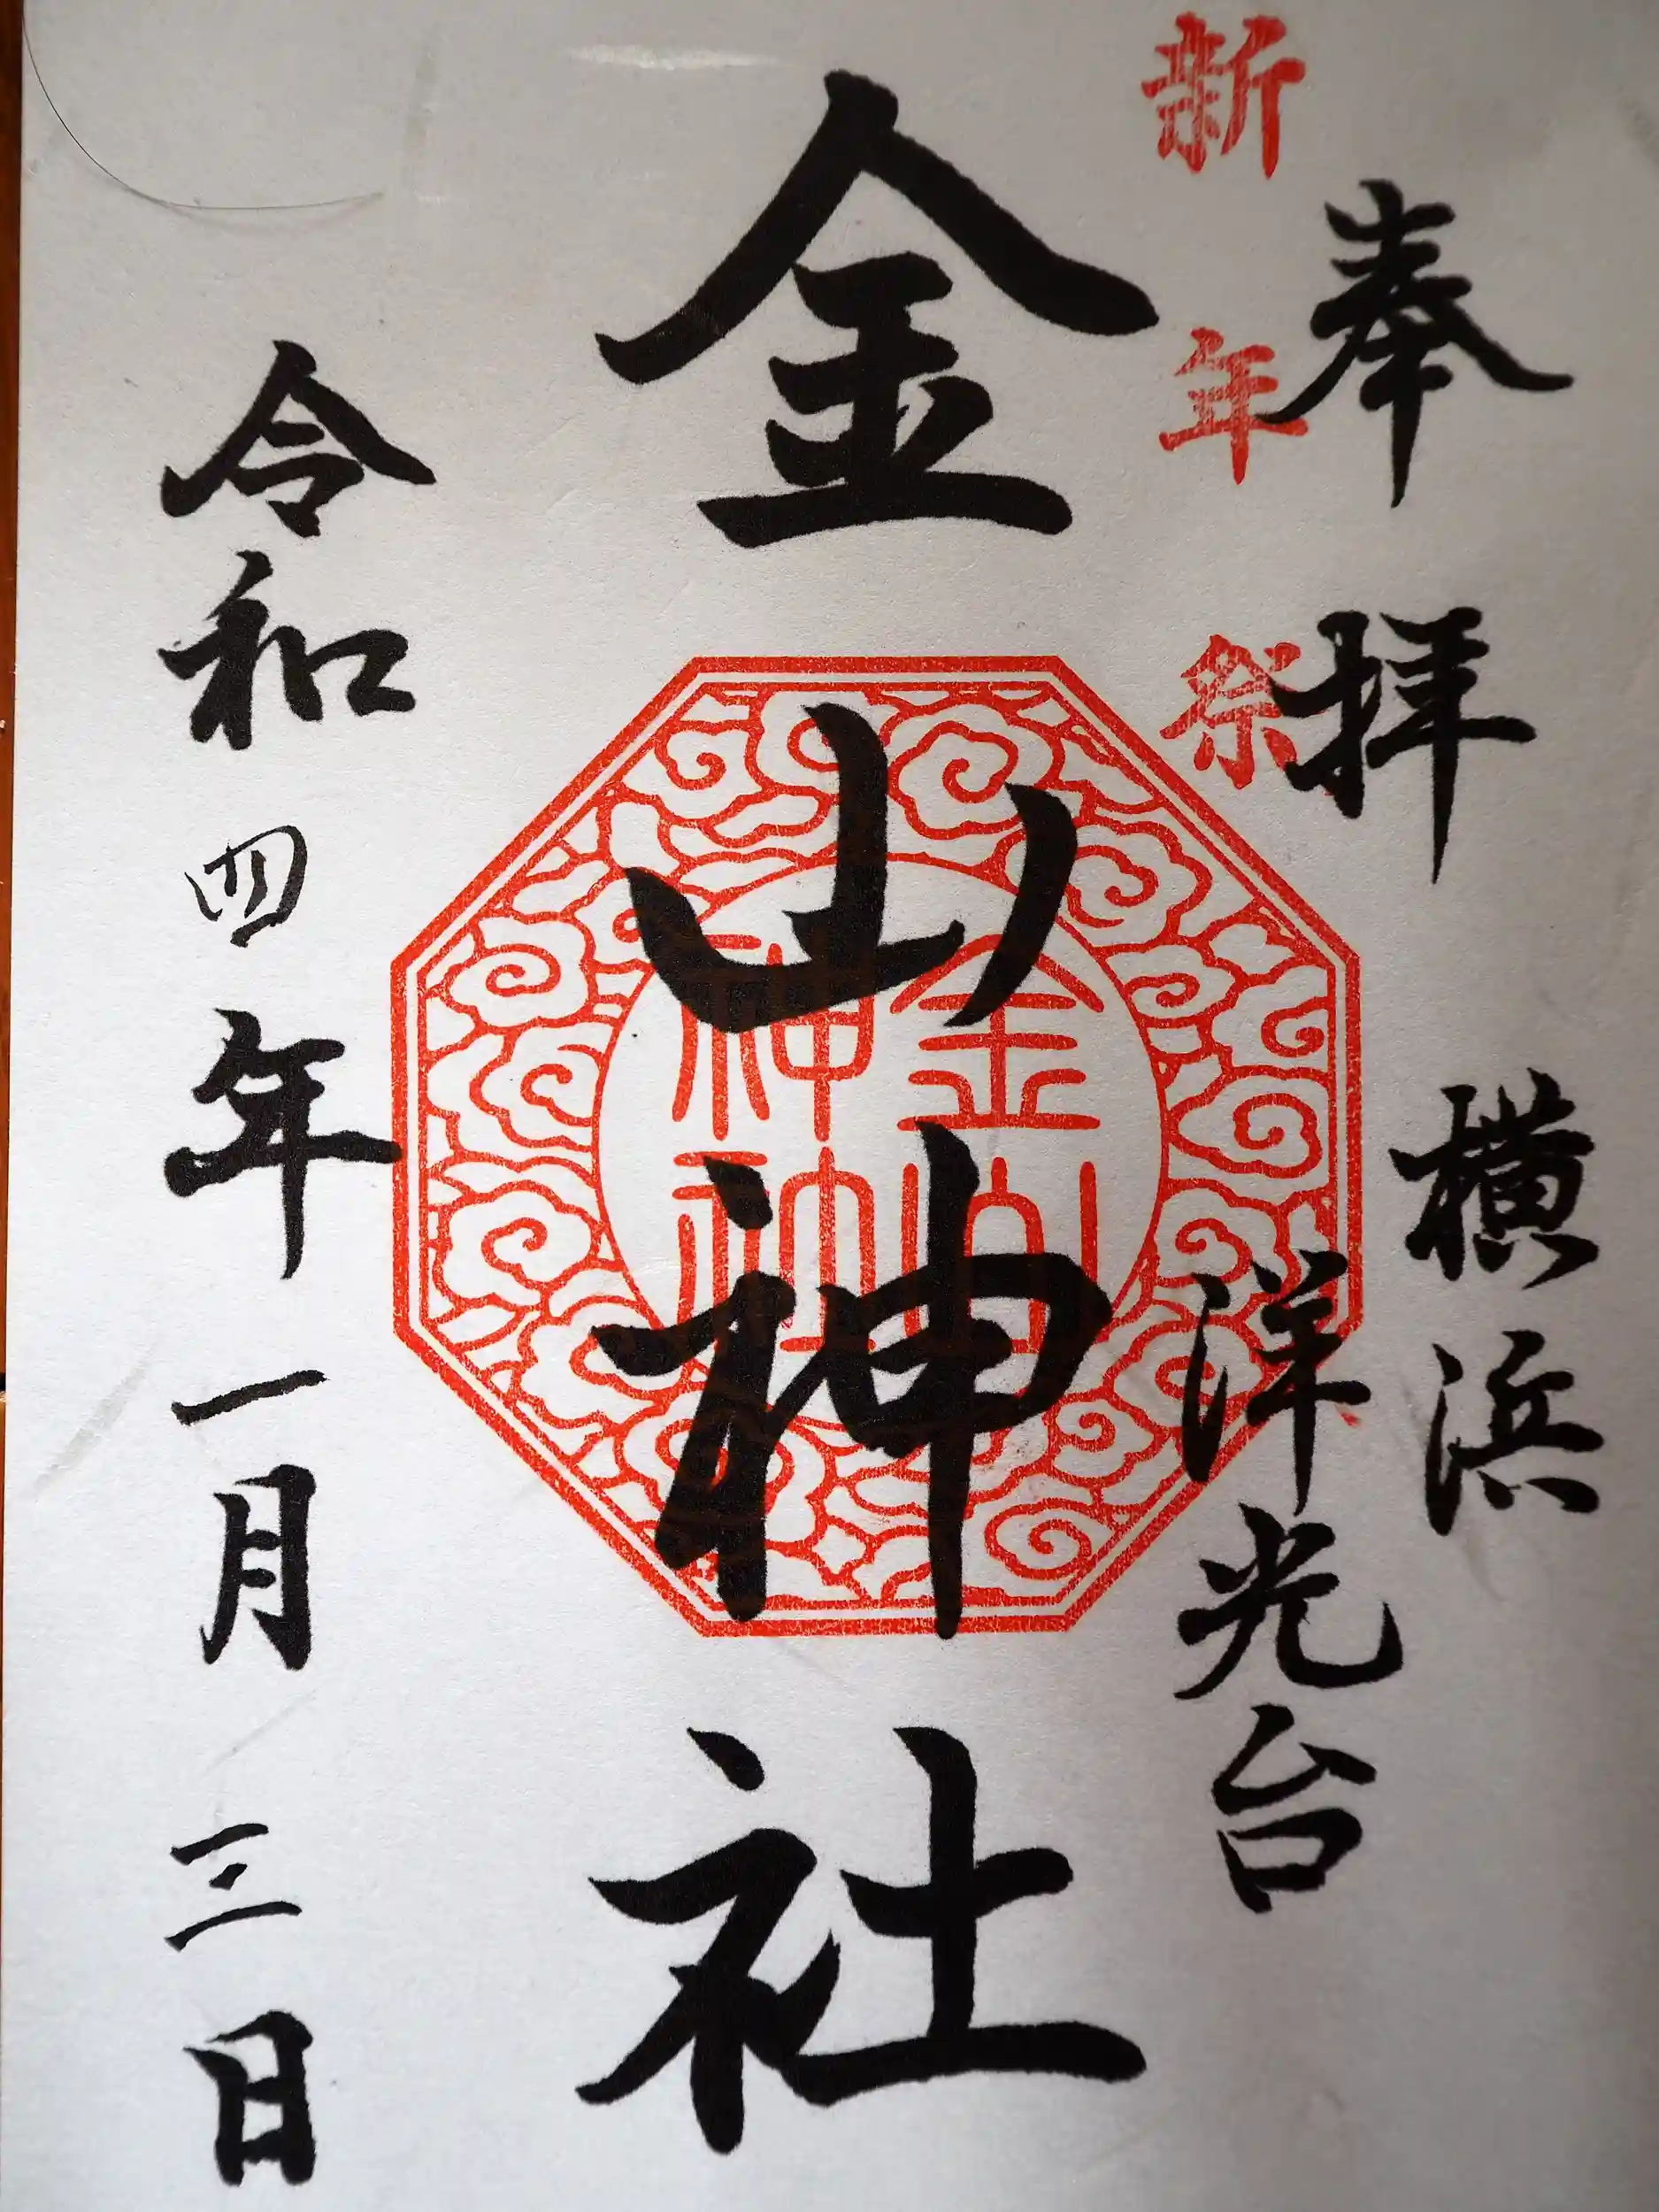 奉拝
横浜
洋光台
新年祭
金山神社
金山
神社
令和四年一月三日